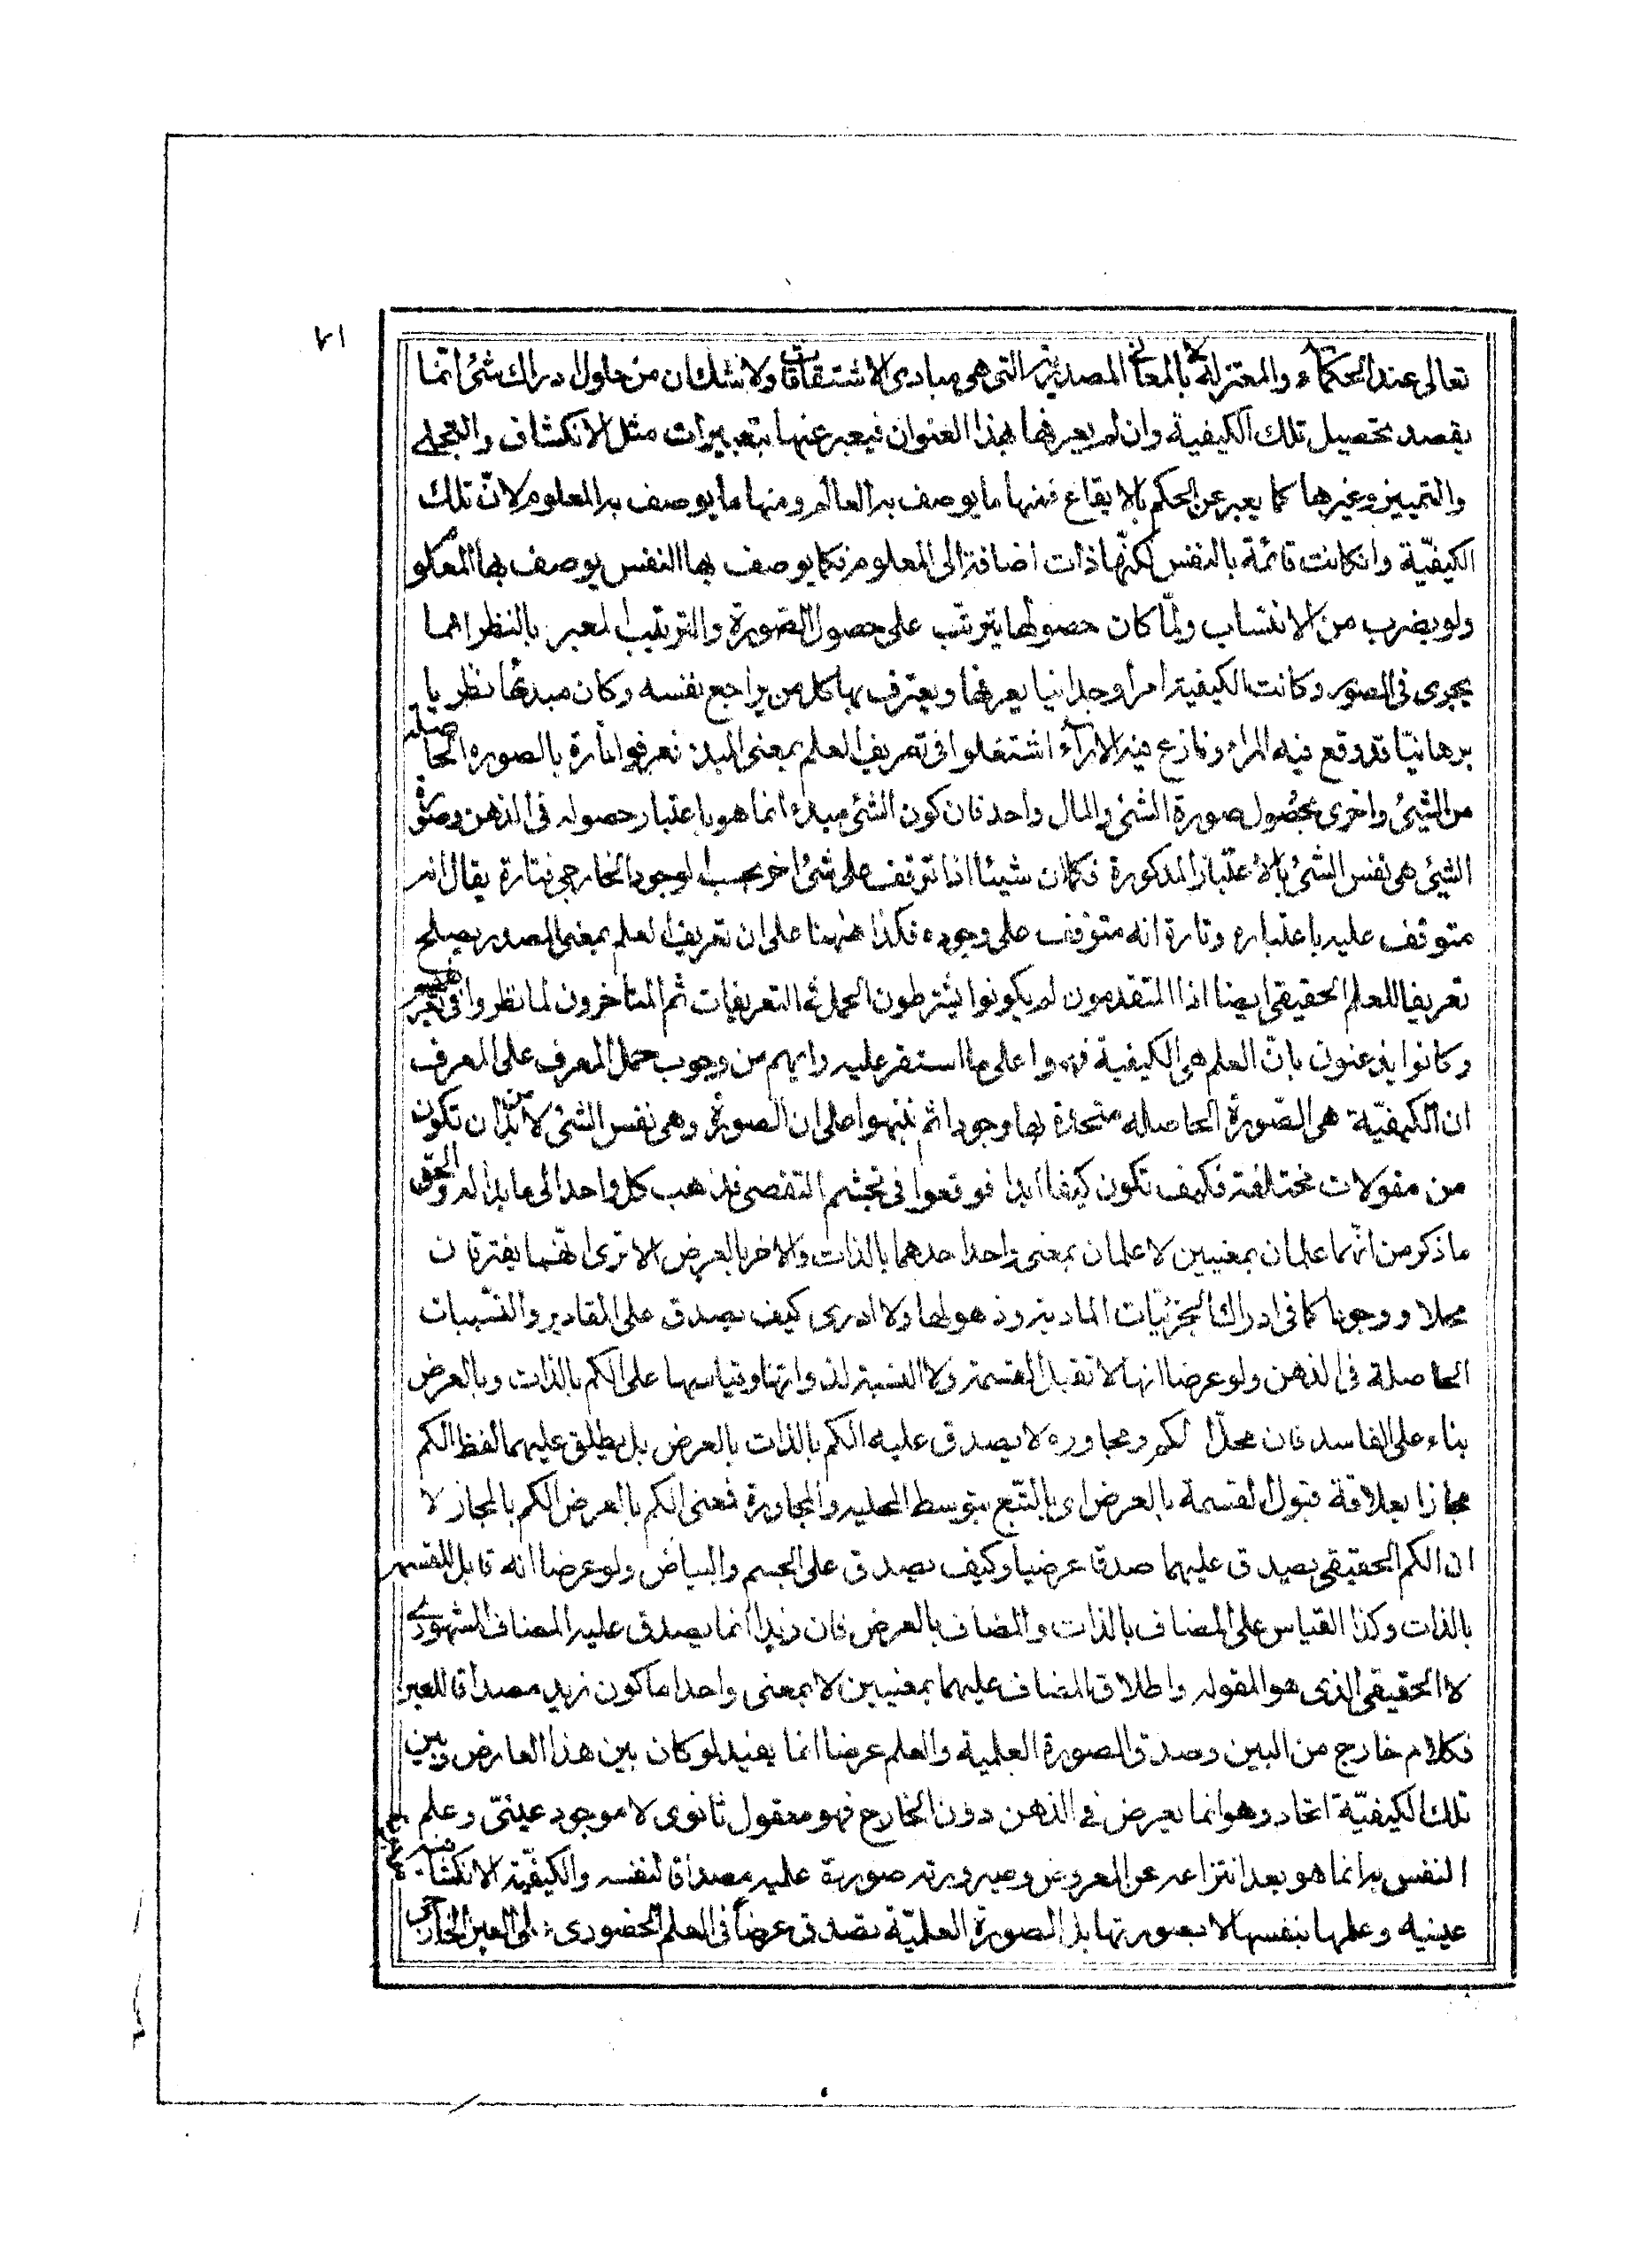 ١٧
تعالى عند الحكماء والمعتزلة لا بالمعاني المصدرية التي هي مبادي الاشتقاقات ولا شك ان من حاول ادراك شئ انما
يقصد تحصيل تلك الكيفية وان لم يعرفها بهذا العنوان فيعبر عنها بتعبيرات مثل الانكشاف والتجلي
والتمييز وغيرها كما يعبر عن الحكم بالايقاع فمنها ما يوصف به العالم ومنها ما يوصف به المعلوم لان تلك
الكيفيّة وانكانت قائمة بالنفس لكنّها ذات اضافة الى المعلوم فكما يوصف بها النفس يوصف بها المعلوم
ولو بضرب من الانتساب ولمّا كان حصولها يترتب على حصول الصّورة والترتيب المعبر بالنظر انما
يجري في الصور وكانت الكيفية امرا وجدانيا يعرفها ويعترف بها كل من يراجع نفسه وكان مبدئها نظريا
برهانيّا قد وقع فيه المراء وتنازع فيه الاراء اشتغلوا في تعريف العلم بمعنى المبدء فعرفوا تارة بالصورة الحاصلة
من الشئ واخرى بحصول صورة الشئ والمال واحد فان كون الشئ مبدء انما هو باعتبار حصوله في الذهن وصورة
الشئ هي نفس الشئ بالاعتبار المذكورة فكما ان شيئا اذا توقف على شئ اخر بحسب الوجود الخارجي فتارة يقال انه
متوقف عليه باعتباره وتارة انه متوقف على وجوده فكذا ههنا على ان تعريف العلم بمعنى المصدر يصلح
تعريفا للعلم الحقيقي ايضا اذ المتقدمون لم يكونوا يشترطون الحمل في التعريفات ثم المتاخرون لما نظروا في تعريفهم
وكانوا يذعنون بانّ العلم هي الكيفية فهموا على ما استقر عليه رايهم من وجوب حمل المعرف على المعرف
ان الكيفيّة هي الصّورة الحاصله متحدة بها وجودا ثم تنبهوا على ان الصورة وهي نفس الشئ لا بد من ان تكون
من مقولات مختلفة فكيف تكون كيفا ابدا فوقعوا في تجشم التقصي فذهب كل واحد الى ما بدا له والحق
ما ذكر من انّهما علمان بمعنيين لا علمان بمعنى واحد احدهما بالذات والاخر بالعرض الا ترى انهما يفترقان
محلا ووجودا كما في ادراك الجزئيات المادية وذهولها ولا ادري كيف يصدق على المقادير والنسبات
الحاصلة في الذهن ولو عرضا انها لا تقبل القسمة ولا النسبة لذواتها وقياسها على الكم بالذات وبالعرض
بناء على الفاسد فان محلّ الكم ومجاوره لا يصدق عليه الكم بالذات بالعرض بل يطلق عليهما لفظ الكم
مجازا بعلاقة قبول القسمة بالعرض اي بالتبع بتوسط المحلية والمجاورة فمعنى الكم بالعرض الكم بالمجاز لا
ان الكم الحقيقي يصدق عليهما صدقا عرضيا وكيف يصدق على الجسم والبياض ولو عرضا انه قابل للقسمة
بالذات وكذا القياس على المضاف بالذات والمضاف بالعرض فان زيدا انما يصدق عليه المضاف المشهوري
لا الحقيقي الذي هو المقوله واطلاق المضاف عليهما بمعنيين لا بمعنى واحد اما كون زيد مصداقا للعين
فكلام خارج من البين وصدق الصورة العلمية والعلم عرضا انما يفيد لو كان بين هذا العارض وبين
تلك الكيفيّة اتحاد وهو انما يعرض في الذهن دون الخارج فهو معقول ثانوي لا موجود عينيّ وعلم
النفس به انما هو بعد انتزاعه عن المعروض وصيرورته صورة علميه مصداقا لنفسه والكيفيّة الانكشافية
عينيه وعلمها بنفسها لا بصورتها بذ الصورة العلميّة تصدق عرضا في العلم الحضوري على العين الخارجي